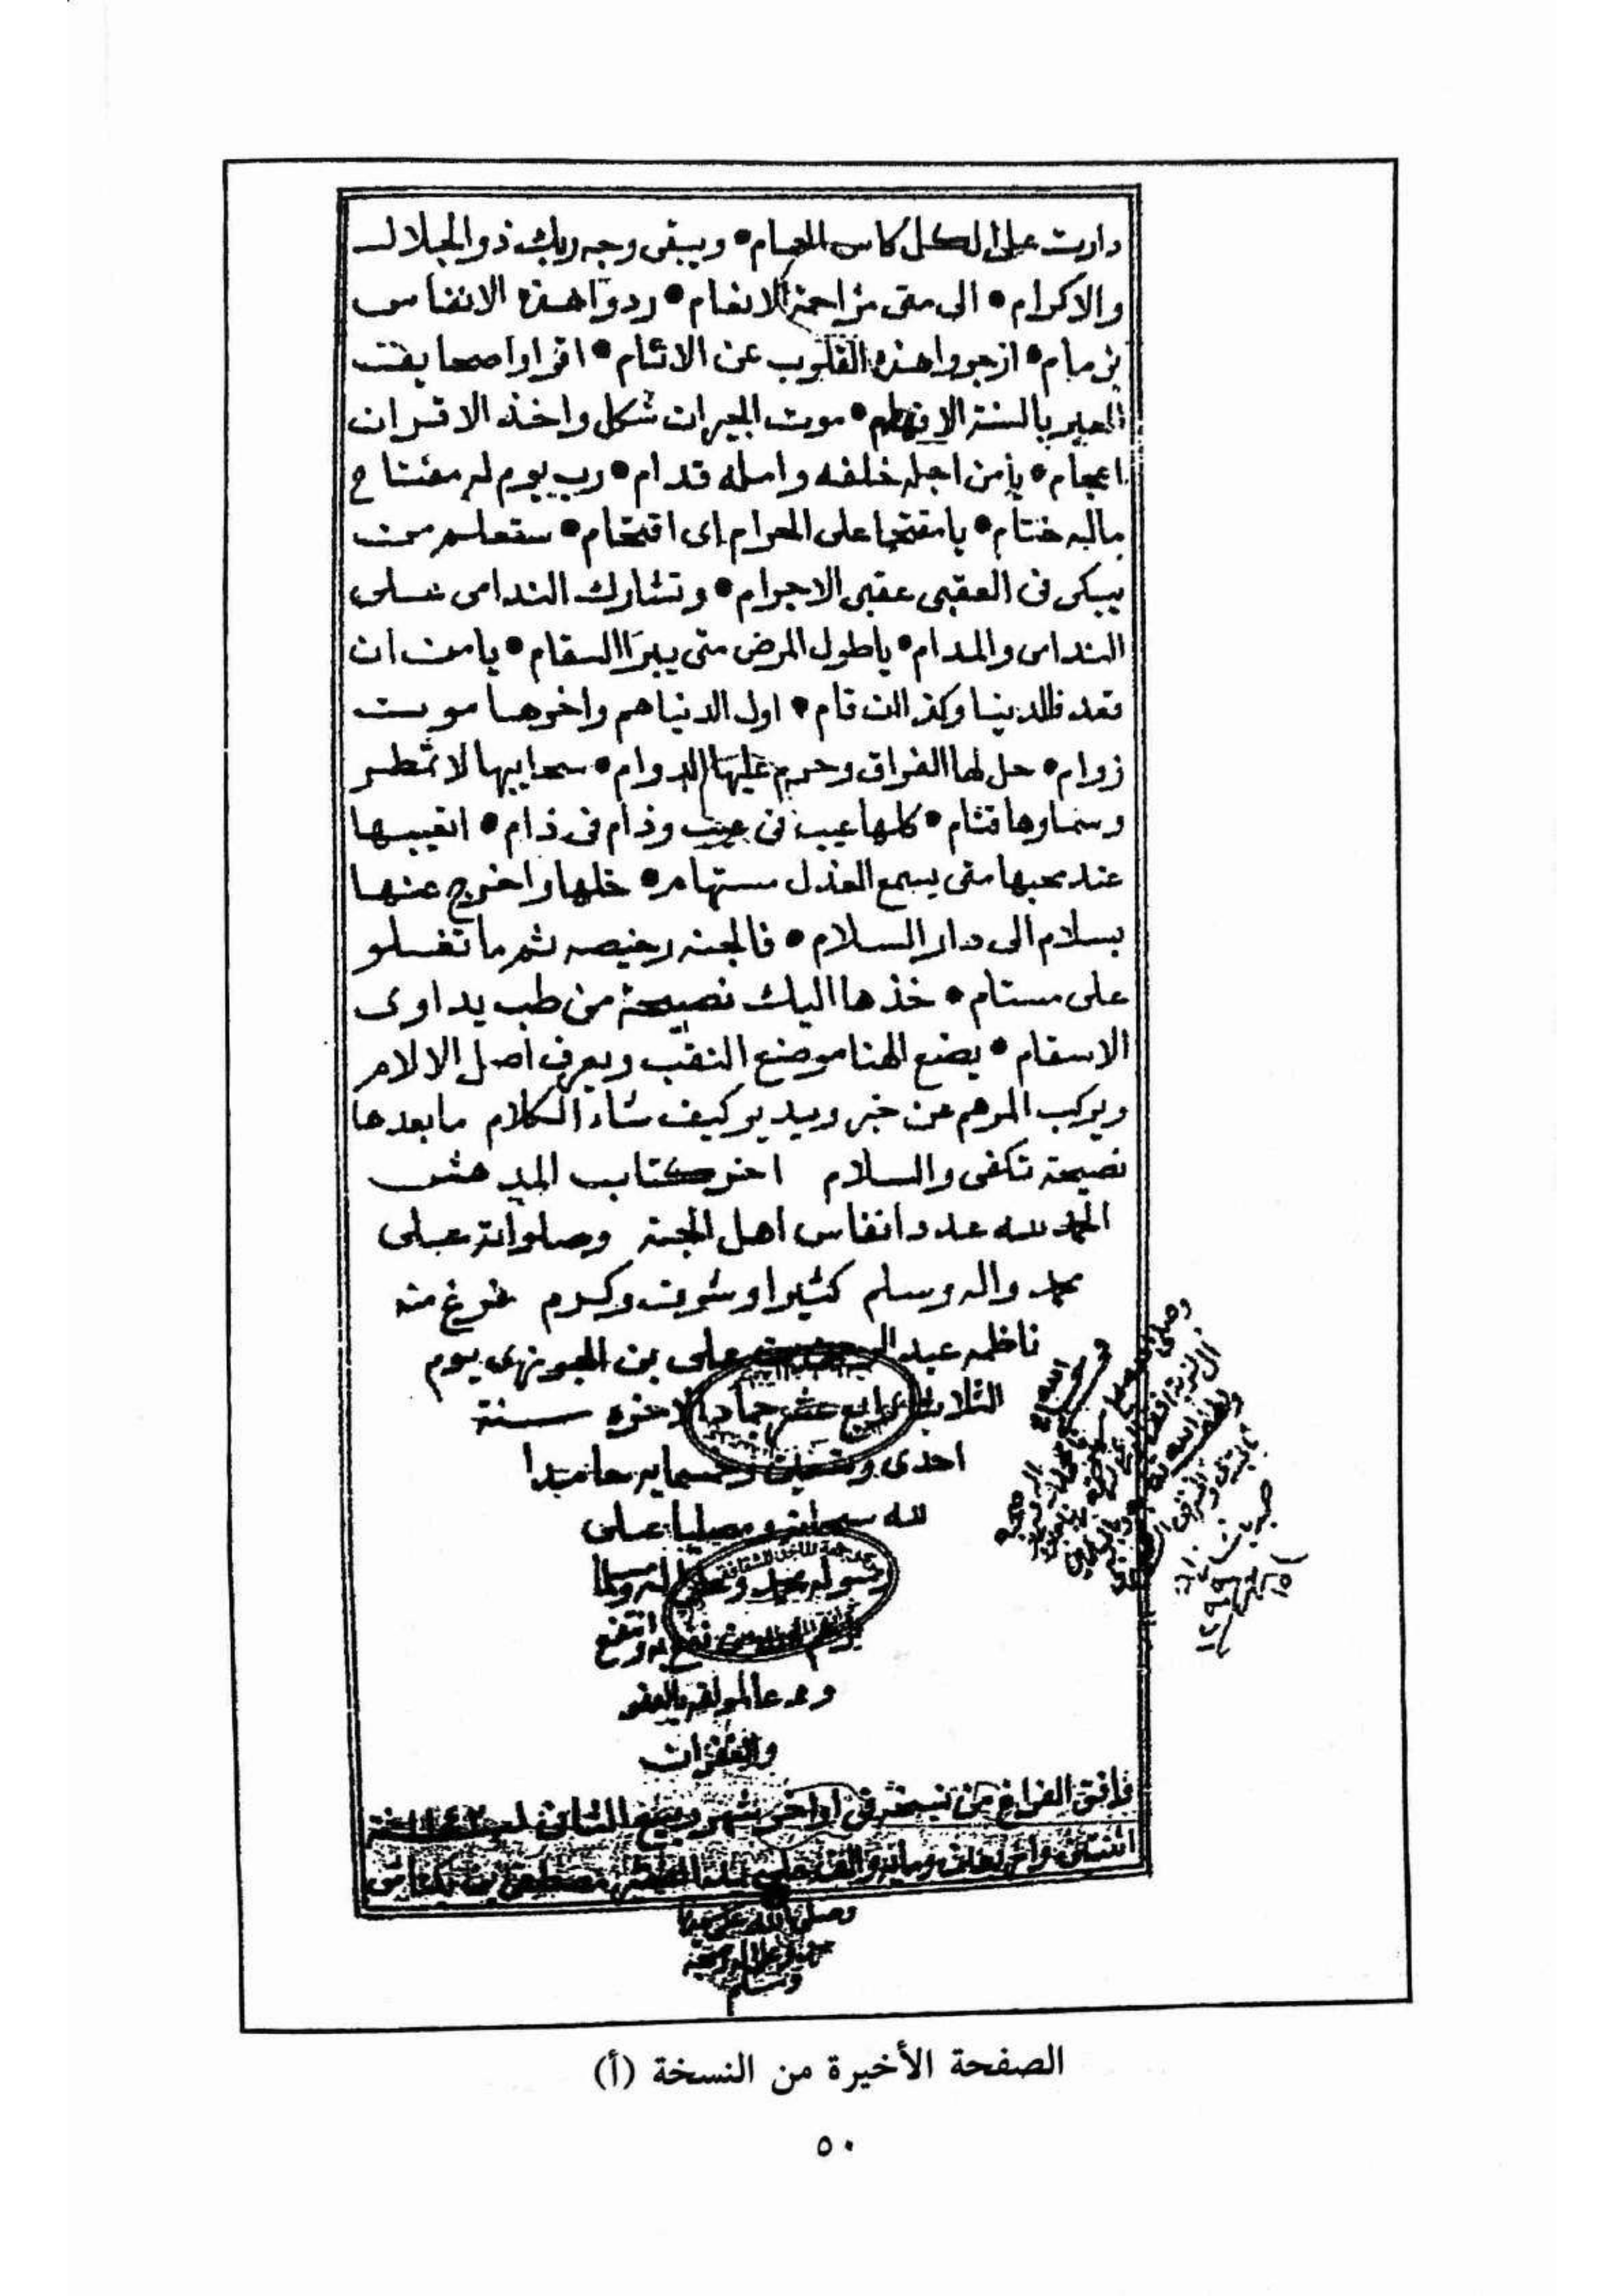 دارت على الكل كاس الحمام • ويبقى وجه ربك ذو الجلال
والاكرام • الى متى مزاحمة الانعام • ردوا هذه الانفاس
بزمام • ازجروا هذه القلوب عن الاثام • اقراوا صحايف
العبر بالسنة الافهام • موت الجيران شكل واخذ الاقران
اعجام • يا من اجله خلفه وامله قدام • رب يوم له مفتتاح
ماله ختام • يا مقتحما على الحرام اى اقتحام • ستعلم من
يبكى فى العقبى عقبى الاجرام • وتشارك الندامى على
الندامى والمدام • يا طول المرض متى يبرا السقام • يا من ان
قعد فللدينا وكذا ان قام • اول الدنيا هم واخرها موت
زوام • حل لها الفراق وحرم عليها الدوام • سحابها لا تمطر
وسماوها قتام • كلها عيب فى عيب وذام فى ذام • اتعيبها
عند محبها متى يسمع العذل مستهام • خلها واخرج عنها
بسلام الى دار السلام • فالجنة رخيصه ثم ما تغلو
على مستام • خذها اليك نصيحة من طب يداوى
الاسقام • يضع الهنا موضع النقب ويعرف اصل الالام
ويركب المرهم عن خبر ويدير كيف شاء الكلام ما بعدها
نصيحة تكفى والسلام اخر كتاب المدهش
الحمد لله عدد انفاس اهل الجنة وصلواته على
محمد واله وسلم كثيرا وشرف وكرم فرغ منه
ناظمه عبد الرحمن بن على بن الجوزى يوم
الثلاثا رابع عشر جمادى الاخره سنة
احدى وتسعين وخمسمايه حامدا
لله سبحانه ومصليا على
رسوله محمد وعلى اله ومسلما
نفع به وانتفع
ودعا لمولفه بالعفو
والغفران
وافق الفراغ من نسخه فى اواخر شهر ربيع الثانى ١١٤٢
اثنتين واربعين وماية والف على يد مصطفى بن
وصلى الله على سيدنا
محمد وعلى اله وصحبه
وسلم
الصفحة الأخيرة من النسخة (أ)
٥٠